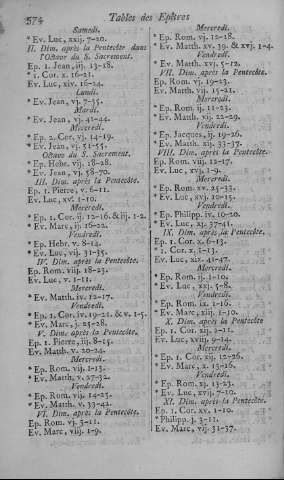 574 Tables des Epîtres
Samedi.
* Ev. Luc, xxij. 7-20.
II. Dim. après la Pentecôte dans
l'Octave du S. Sacrement.
Ep. 1. Jean, iij. 13-18.
* 1. Cor. x. 16-21.
Ev. Luc, xiv. 16-24.
Lundi.
* Ev. Jean, vj. 7-35.
Mardi.
* Ev. Jean, vj. 41-44.
Mecredi.
* Ep. 2. Cor. vj. 14-19.
* Ev. Jean, vj. 51-55.
Octave du S. Sacrement.
* Ep. Hebr. vij. 18-28.
* Ev. Jean, vj. 58-70.
III. Dim. après la Pentecôte.
Ep. 1. Pierre, v. 6-11.
Ev. Luc, xv. 1-10.
Mecredi.
* Ep. 1. Cor. ij. 12-16. & iij. 1-2.
* Ev. Marc, ij. 16-22.
Vendredi.
* Ep. Hebr. v. 8-14.
* Ev. Luc, vij. 31-35.
IV. Dim. après la Pentecôte.
Ep. Rom. viij. 18-23.
Ev. Luc, v. 1-11.
Mecredi.
* Ev. Matth. iv. 12-17.
Vendredi.
* Ep. 1. Cor. iv. 19-21. & v. 1-5.
* Ev. Marc, j. 25-28.
V. Dim. après la Pentecôte.
Ep. 1. Pierre, iij. 8-15.
Ev. Matth. v. 20-24.
Mecredi.
* Ep. Rom. viij. 1-13.
* Ev. Matth. v. 27-32.
Vendredi.
* Ep. Rom. viij. 14-25.
* Ev. Matth. v. 33-42.
VI. Dim. après la Pentecôte.
Ep. Rom. vj. 3-11.
Ev. Marc, viij. 1-9.
Mecredi.
* Ep. Rom. vj. 12-18.
* Ev. Matth. xv. 39. & xvj. 1-4.
Vendredi.
* Ev. Matth. xvj. 5-12.
VII. Dim. après la Pentecôte.
Ep. Rom. vj. 19-23.
Ev. Matth. vij. 15-21.
Mecredi.
* Ep. Rom. ij. 11-23.
* Ev. Matth. vij. 22-29.
Vendredi.
* Ep. Jacques, ij. 19-26.
* Ev. Matth. xij. 33-37.
VIII. Dim. après la Pentecôte.
Ep. Rom. viij. 12-17.
Ev. Luc, xvj. 1-9.
Mecredi.
* Ep. Rom. xv. 25-33.
* Ev. Luc, xvj. 10-15.
Vendredi.
* Ep. Philipp. iv. 10-20.
* Ev. Luc, xj. 37-41.
IX. Dim. après la Pentecôte.
Ep. 1. Cor. x. 6-13.
* 1. Cor. x. 1-13.
Ev. Luc, xix. 41-47.
Mecredi.
* Ep. Rom. ij. 1-10.
* Ev. Luc, xxj. 5-8.
Vendredi.
* Ep. Rom. ix. 1-16.
* Ev. Marc, xiij. 1-10.
X. Dim. après la Pentecôte
Ep. 1. Cor. xij. 2-11.
Ev. Luc, xviij. 9-14.
Mecredi.
* Ep. 1. Cor. xij. 12-26.
* Ev. Marc, x. 13-16.
Vendredi.
* Ep. Rom. xj. 13-23.
* Ev. Luc, xvij. 7-10.
XI. Dim. après la Pentecôte.
Ep. 1. Cor. xv. 1-10.
* Philipp. j. 3-11.
Ev. Marc, vij. 31-37.